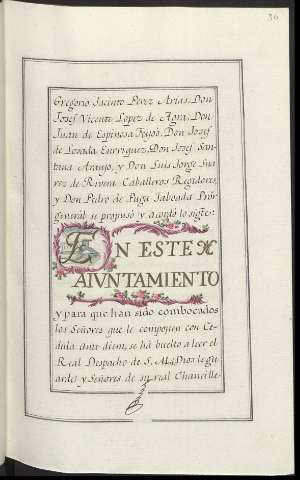 36
Gregorio Jacinto Perez Arias, Don
Josef Vicente Lopez de Agra, Don
Juan de Espinosa Feijoó, Don Josef
de Losada Enrriquez, Don Josef San-
tana Araujo, y Don Luis Jorge Sua
rez de Rivera Caballeros Regidores,
y Don Pedro de Puga Taboada Prôr
general se propusó y acordó lo sigte:
EN ESTE
AIUNTAMIENTO
y para que han sido combocados
los Señores que le componen con Ce-
dula ante diem, se há buelto a leer el
Real Despacho de S. M. (Dios le gu-
arde) y Señores de su real Chancille-